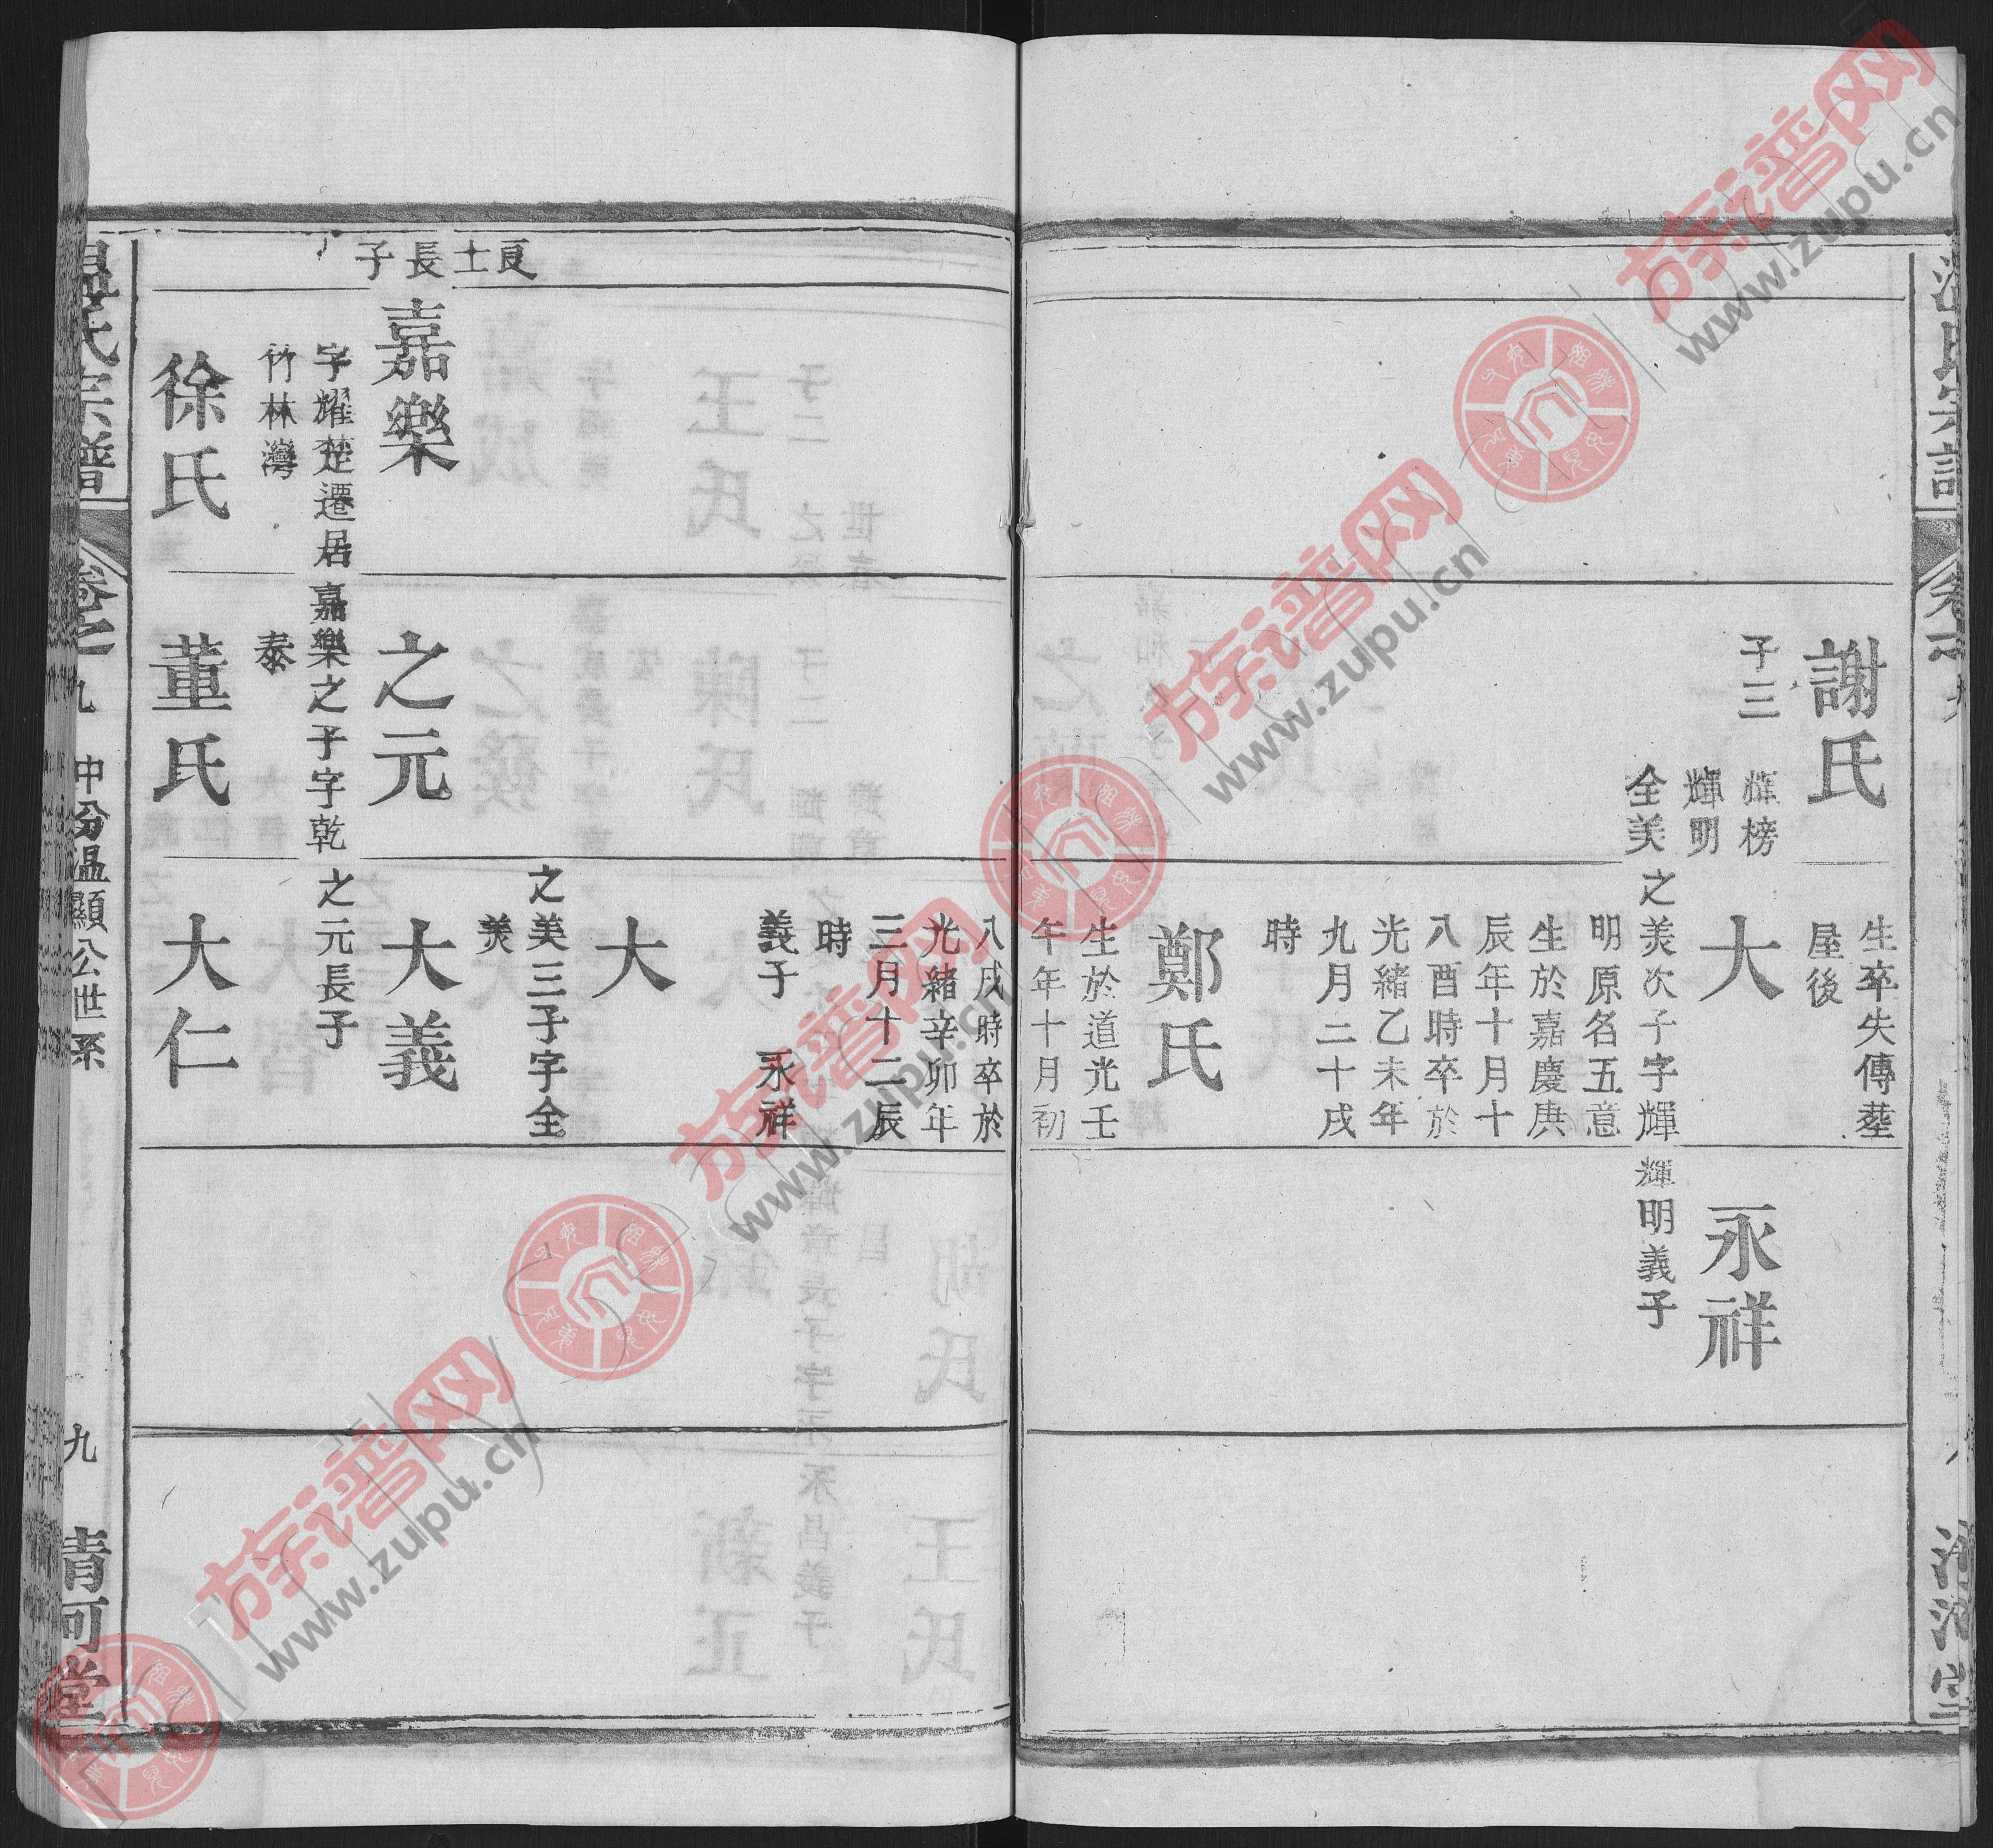 謝氏
子三
輝榜
輝明
全美
生卒失傳塟
屋後
大
之美次子字輝
明原名五意
生於嘉慶庚
辰年十月十
八酉時卒於
光緒乙未年
九月二十戌
時
鄭氏
生於道光壬
午年十月初
永祥
輝明義子
八戌時卒於
光緒辛卯年
三月十二辰
時
義子 永祥
大
之美三子字全
美
良士長子
嘉樂
字耀楚遷居
竹林灣
徐氏
之元
嘉樂之子字乾
泰
董氏
大義
之元長子
大仁
溫氏宗譜
卷之九
中分溫顯公世系
九
清河堂
族谱网
www.zupu.cn
族谱网
www.zupu.cn
族谱网
www.zupu.cn
族谱网
www.zupu.cn